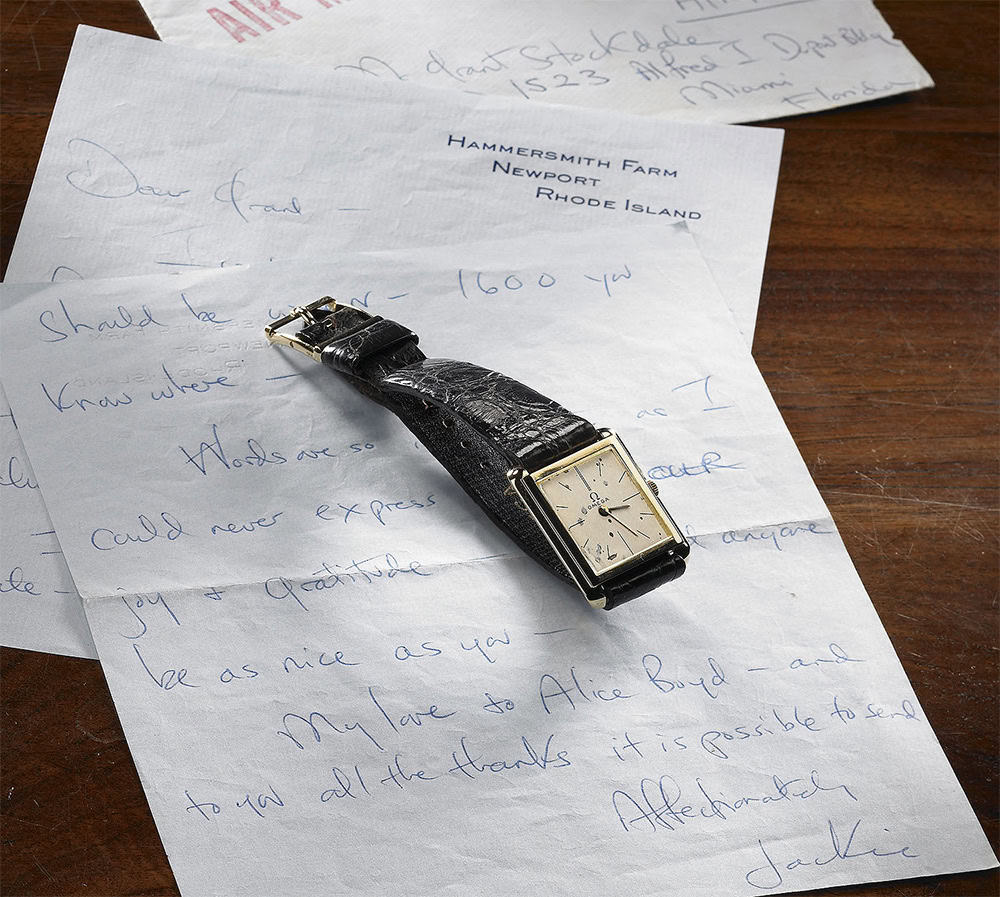 AIR M
Grant Stockdale
1523 Alfred I Dupont Bldg
Miami
Florida
HAMMERSMITH FARM
NEWPORT
RHODE ISLAND
Dear Grant —
should be — 1600 you
know where —
Words are so as I
could never express
joy + gratitude anyone
be as nice as you —
My love to Alice Boyd — and
to you all the thanks it is possible to send
Affectionately
Jackie
Ω
OMEGA